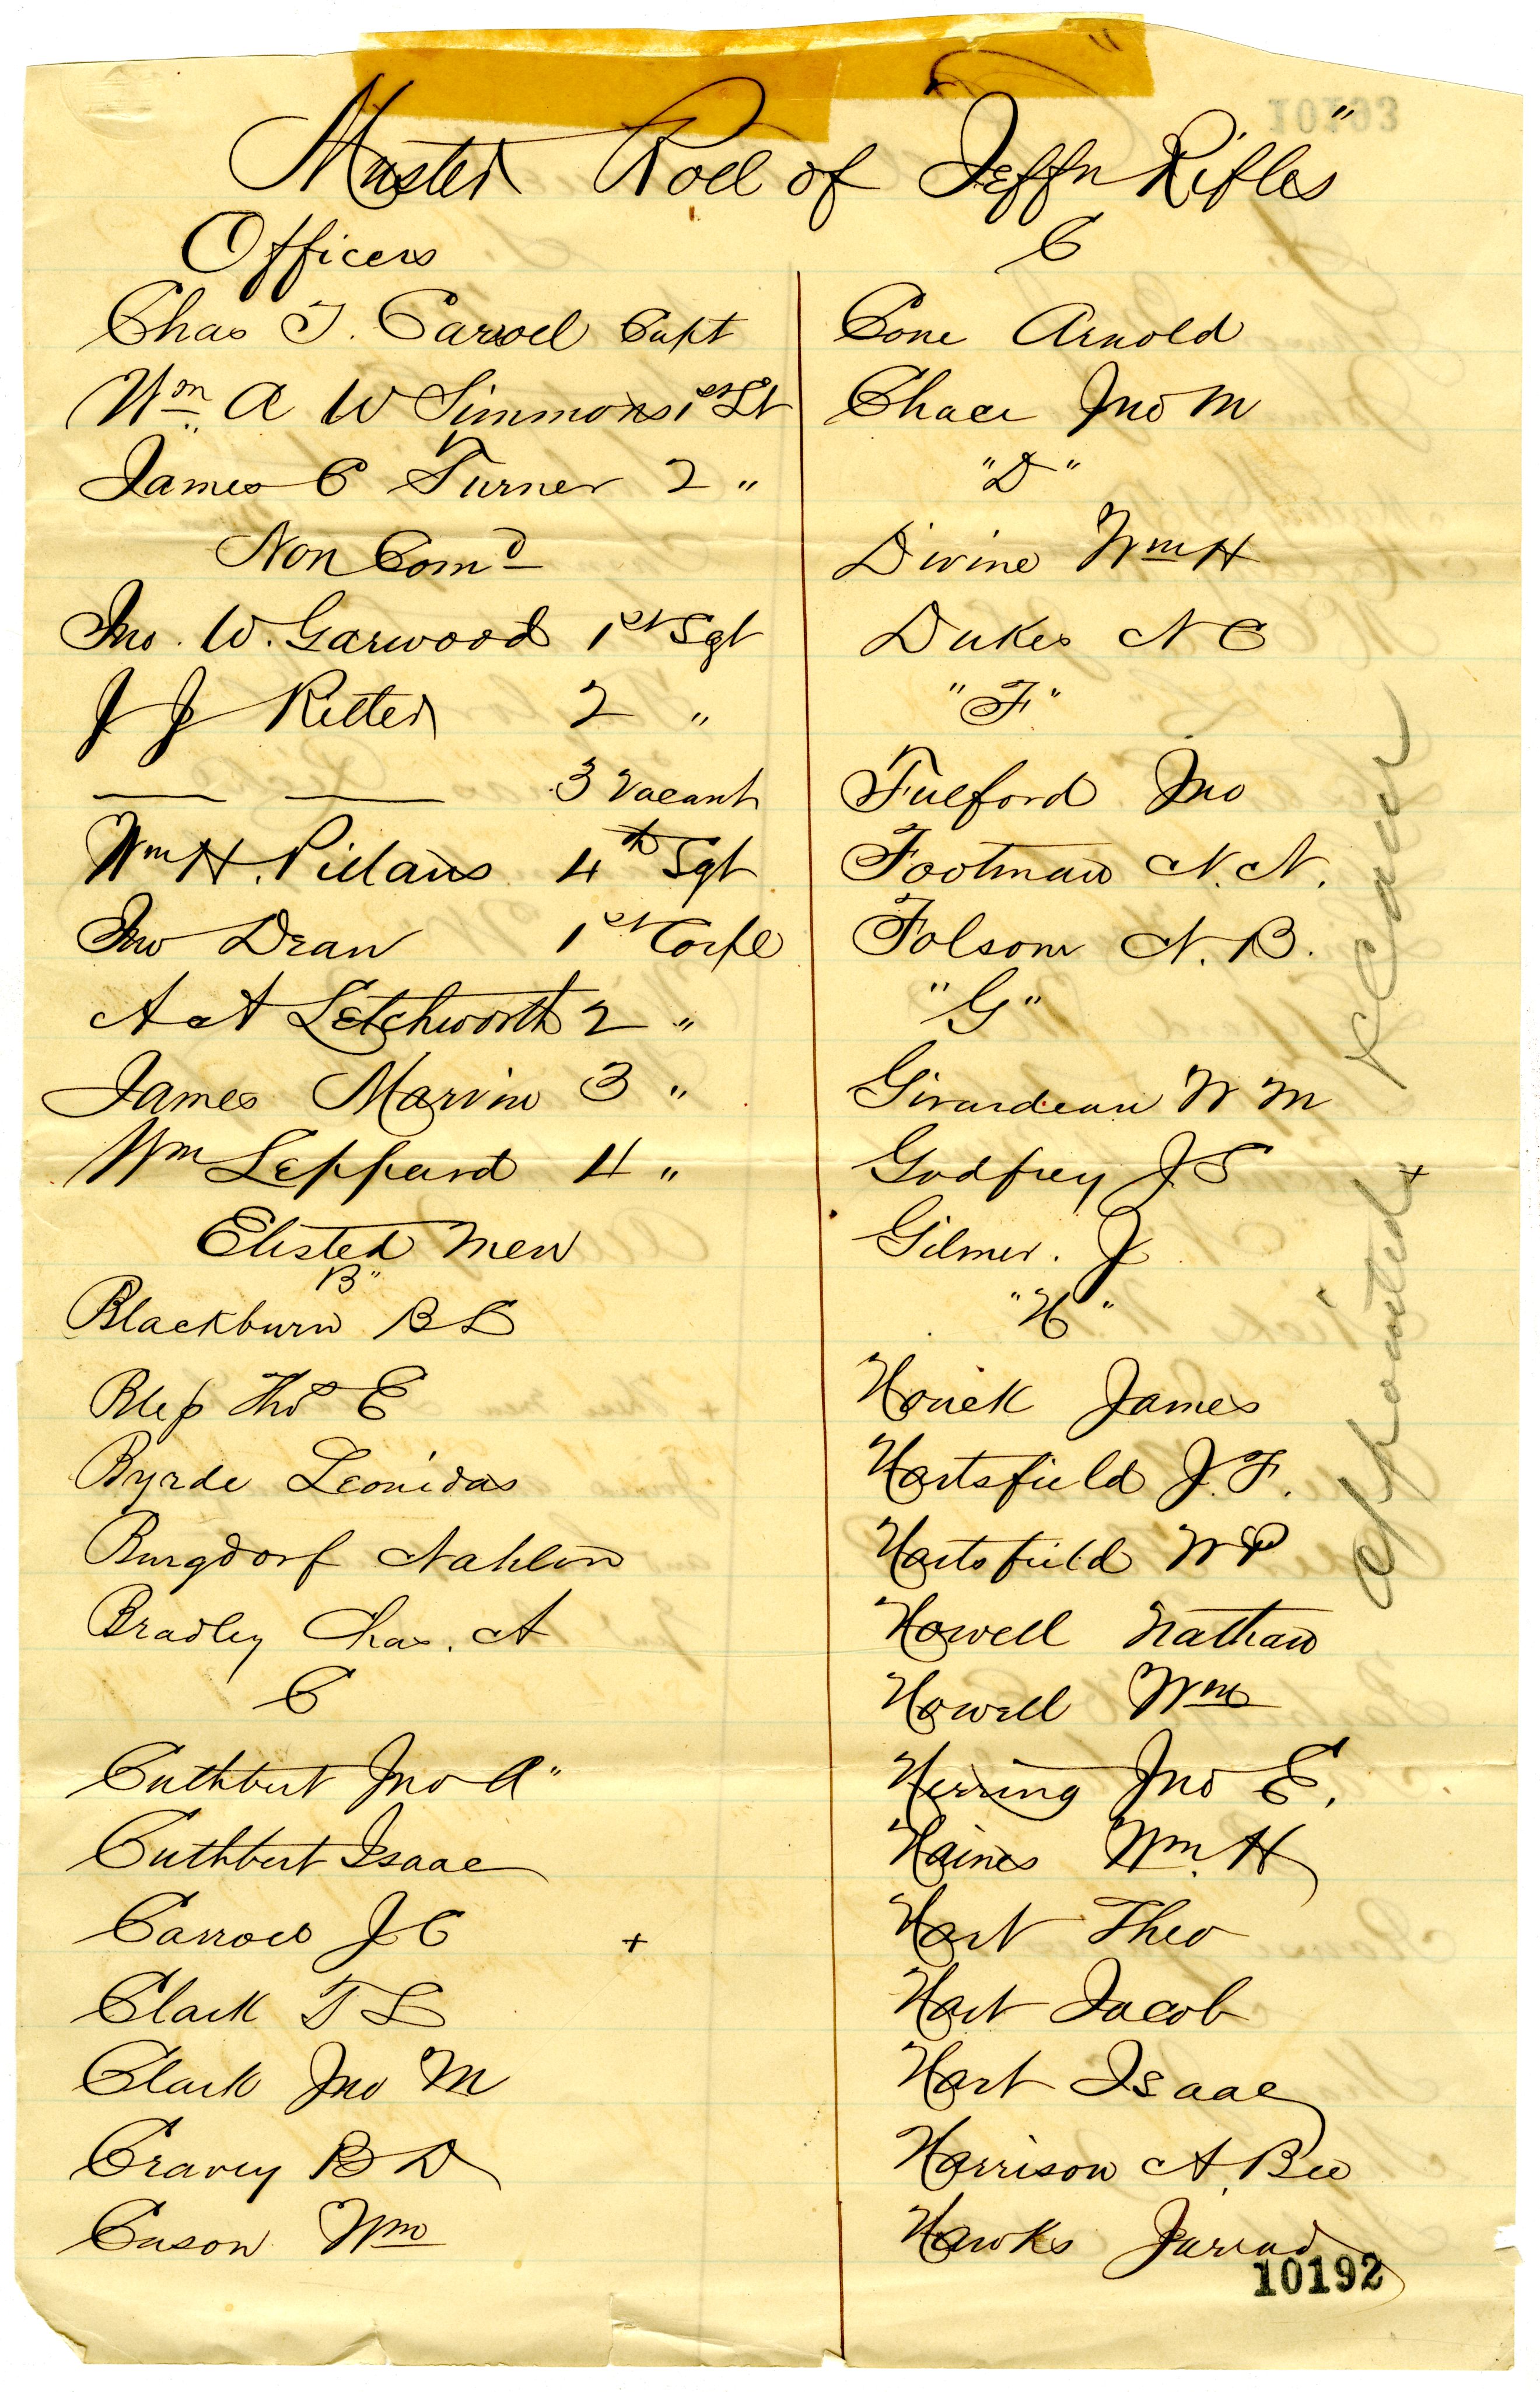 Muster Roll of "Jeffn Rifles"
Officers
Chas T. Carroll Capt
Wm A W Simmons 1st Lt
James C Turner 2 "
Non Comd
Jno. W. Garwood 1st Sgt
J J Ritter 2 "
3 Vacant
Wm H. Pillans 4th Sgt
Jno Dean 1st Corpl
A A Letchworth 2 "
James Marvin 3 "
Wm Leppard 4 "
Elisted Men
B"
Blackburn B L
Bless Thos E
Byrde Leonidas
Burgdorf
Bradley Chas. A
C
Cuthbert Jno A"
Cuthbert Isaac
Carroll J C +
Clark T L
Clark Jno M
Cravey B D
Cason Wm
C
Cone Arnold
Chace Jno M
"D"
Divine Wm H
Dukes N C
"F"
Fulford Jno
Footman N. N.
Folsom N. B.
"G"
Girardeau W M
Godfrey J S +
Gilmer. J
"H"
Houck James
Hartsfield J. F.
Hartsfield W P
Howell Nathan
Howell Wm
Herring Jno E.
Haines Wm. H
Hart Theo
Hart Jacob
Hart Isaac
Harrison A. Bee
Hawks Jarrad
appointed
10192
10193